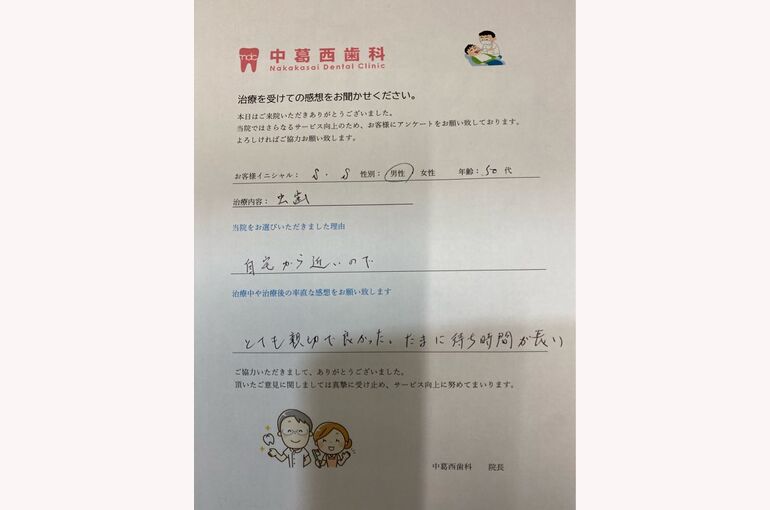 mdc 中葛西歯科
Nakakasai Dental Clinic
治療を受けての感想をお聞かせください。
本日はご来院いただきありがとうございました。
当院ではさらなるサービス向上のため、お客様にアンケートをお願い致しております。
よろしければご協力お願い致します。
お客様イニシャル： S . S 性別： 男性 女性 年齢： 50 代
治療内容： 虫歯
当院をお選びいただきました理由
自宅から近いので
治療中や治療後の率直な感想をお願い致します
とても親切で良かった。たまに待ち時間が長い
ご協力いただきまして、ありがとうございました。
頂いたご意見に関しましては真摯に受け止め、サービス向上に努めてまいります。
中葛西歯科 院長